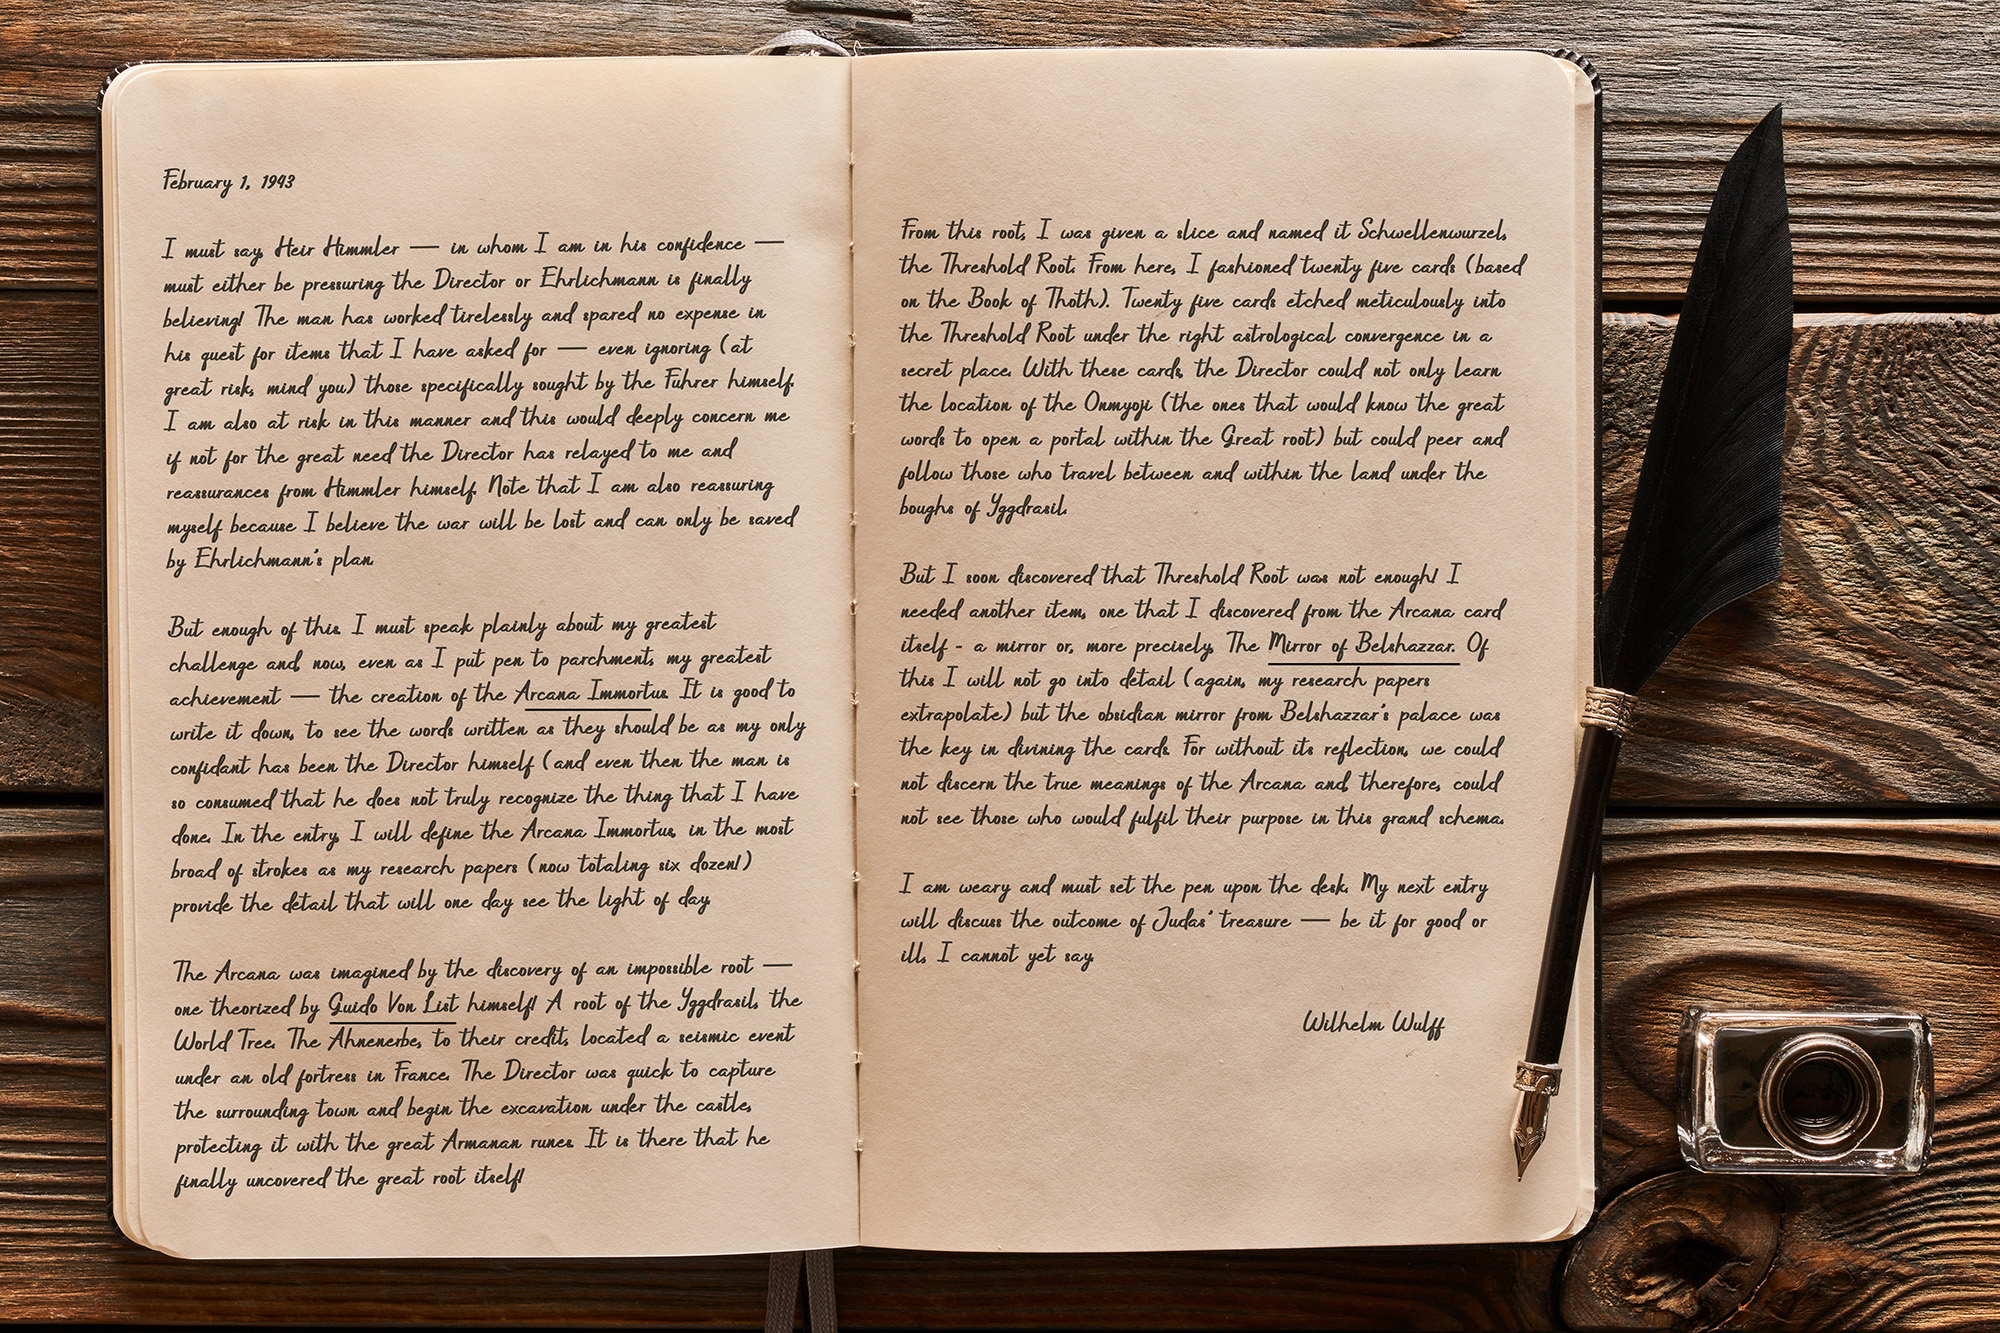 February 1, 1943
I must say, Heir Himmler — in whom I am in his confidence —
must either be pressuring the Director or Ehrlichmann is finally
believing! The man has worked tirelessly and spared no expense in
his quest for items that I have asked for — even ignoring (at
great risk, mind you) those specifically sought by the Fuhrer himself.
I am also at risk in this manner and this would deeply concern me
if not for the great need the Director has relayed to me and
reassurances from Himmler himself. Note that I am also reassuring
myself because I believe the war will be lost and can only be saved
by Ehrlichmann's plan.
But enough of this. I must speak plainly about my greatest
challenge and, now, even as I put pen to parchment, my greatest
achievement — the creation of the Arcana Immortus. It is good to
write it down, to see the words written as they should be as my only
confidant has been the Director himself (and even then the man is
so consumed that he does not truly recognize the thing that I have
done. In the entry, I will define the Arcana Immortus, in the most
broad of strokes as my research papers (now totaling six dozen!)
provide the detail that will one day see the light of day.
The Arcana was imagined by the discovery of an impossible root —
one theorized by Guido Von List himself! A root of the Yggdrasil, the
World Tree. The Ahnenerbe, to their credit, located a seismic event
under an old fortress in France. The Director was quick to capture
the surrounding town and begin the excavation under the castle,
protecting it with the great Armanan runes. It is there that he
finally uncovered the great root itself!
From this root, I was given a slice and named it Schwellenwurzel,
the Threshold Root. From here, I fashioned twenty five cards (based
on the Book of Thoth). Twenty five cards etched meticulously into
the Threshold Root under the right astrological convergence in a
secret place. With these cards, the Director could not only learn
the location of the Onmyoji (the ones that would know the great
words to open a portal within the Great root) but could peer and
follow those who travel between and within the land under the
boughs of Yggdrasil.
But I soon discovered that Threshold Root was not enough! I
needed another item, one that I discovered from the Arcana card
itself - a mirror or, more precisely, The Mirror of Belshazzar. Of
this I will not go into detail (again, my research papers
extrapolate) but the obsidian mirror from Belshazzar's palace was
the key in divining the cards. For without its reflection, we could
not discern the true meanings of the Arcana and, therefore, could
not see those who would fulfil their purpose in this grand schema.
I am weary and must set the pen upon the desk. My next entry
will discuss the outcome of Judas' treasure — be it for good or
ill, I cannot yet say.
Wilhelm Wulff